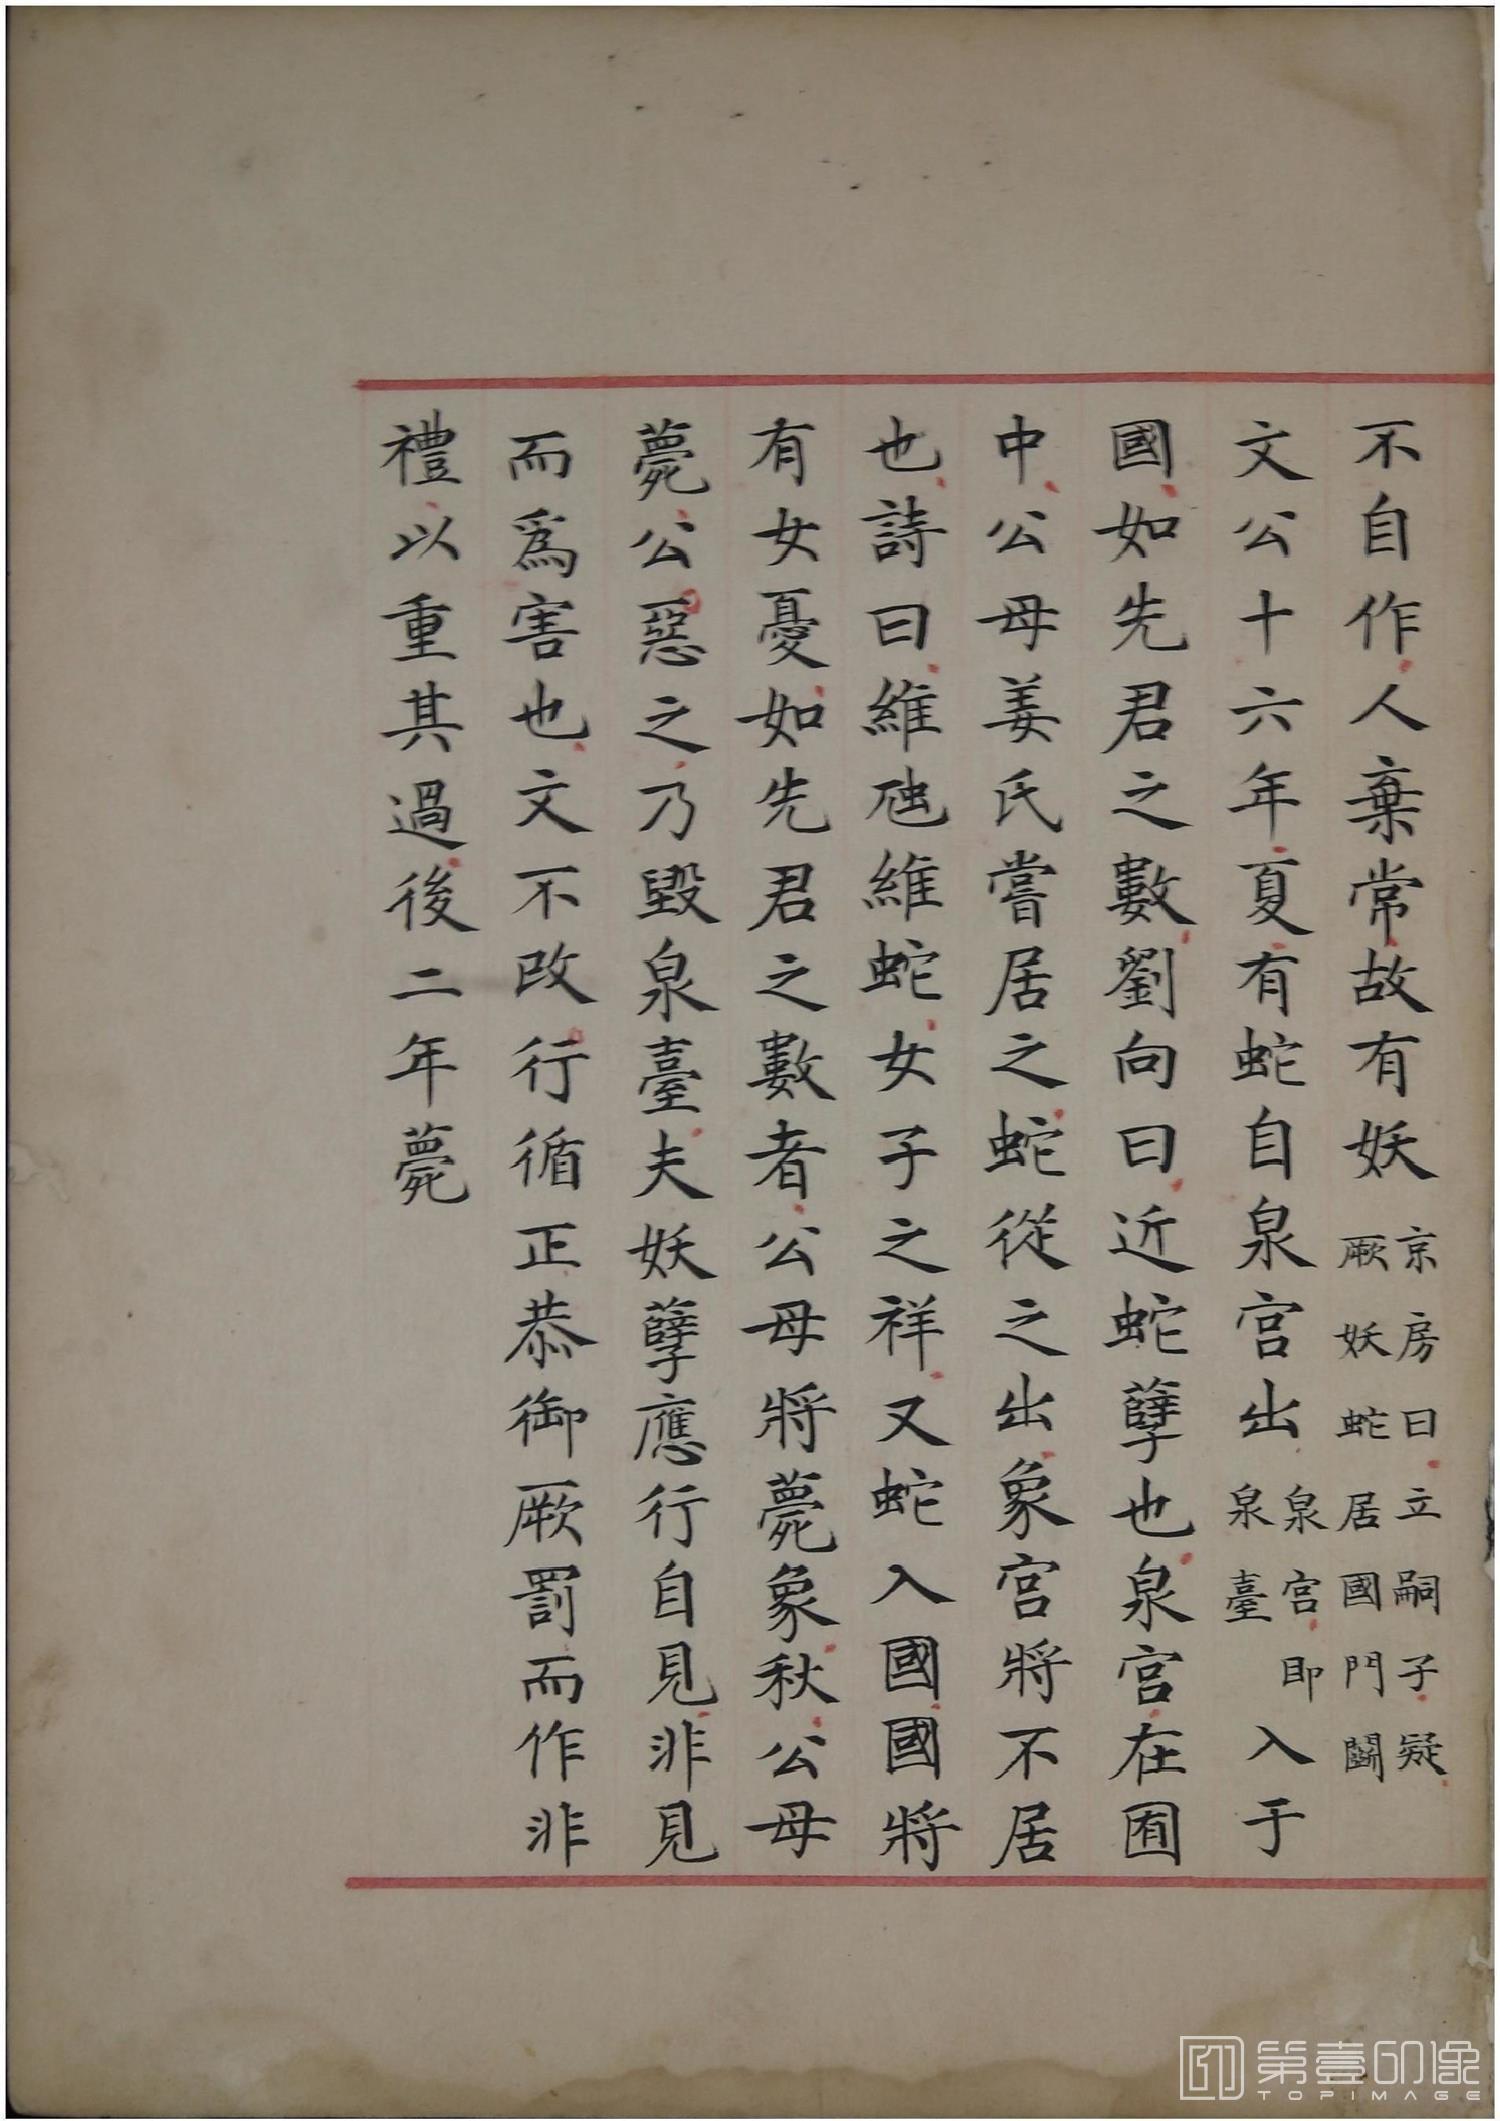 不自作人棄常故有妖京房曰立嗣子疑厥妖蛇居國門鬬
文公十六年夏有蛇自泉宮出泉宮即泉臺入于
國如先君之數劉向曰近蛇孽也泉宮在囿
中公母姜氏嘗居之蛇從之出象宮將不居
也詩曰維虺維蛇女子之祥又蛇入國國將
有女憂如先君之數者公母將薨象秋公母
薨公惡之乃毀泉臺夫妖孽應行自見非見
而爲害也文不改行循正恭御厥罰而作非
禮以重其過後二年薨
第壹印像
TOPIMAGE